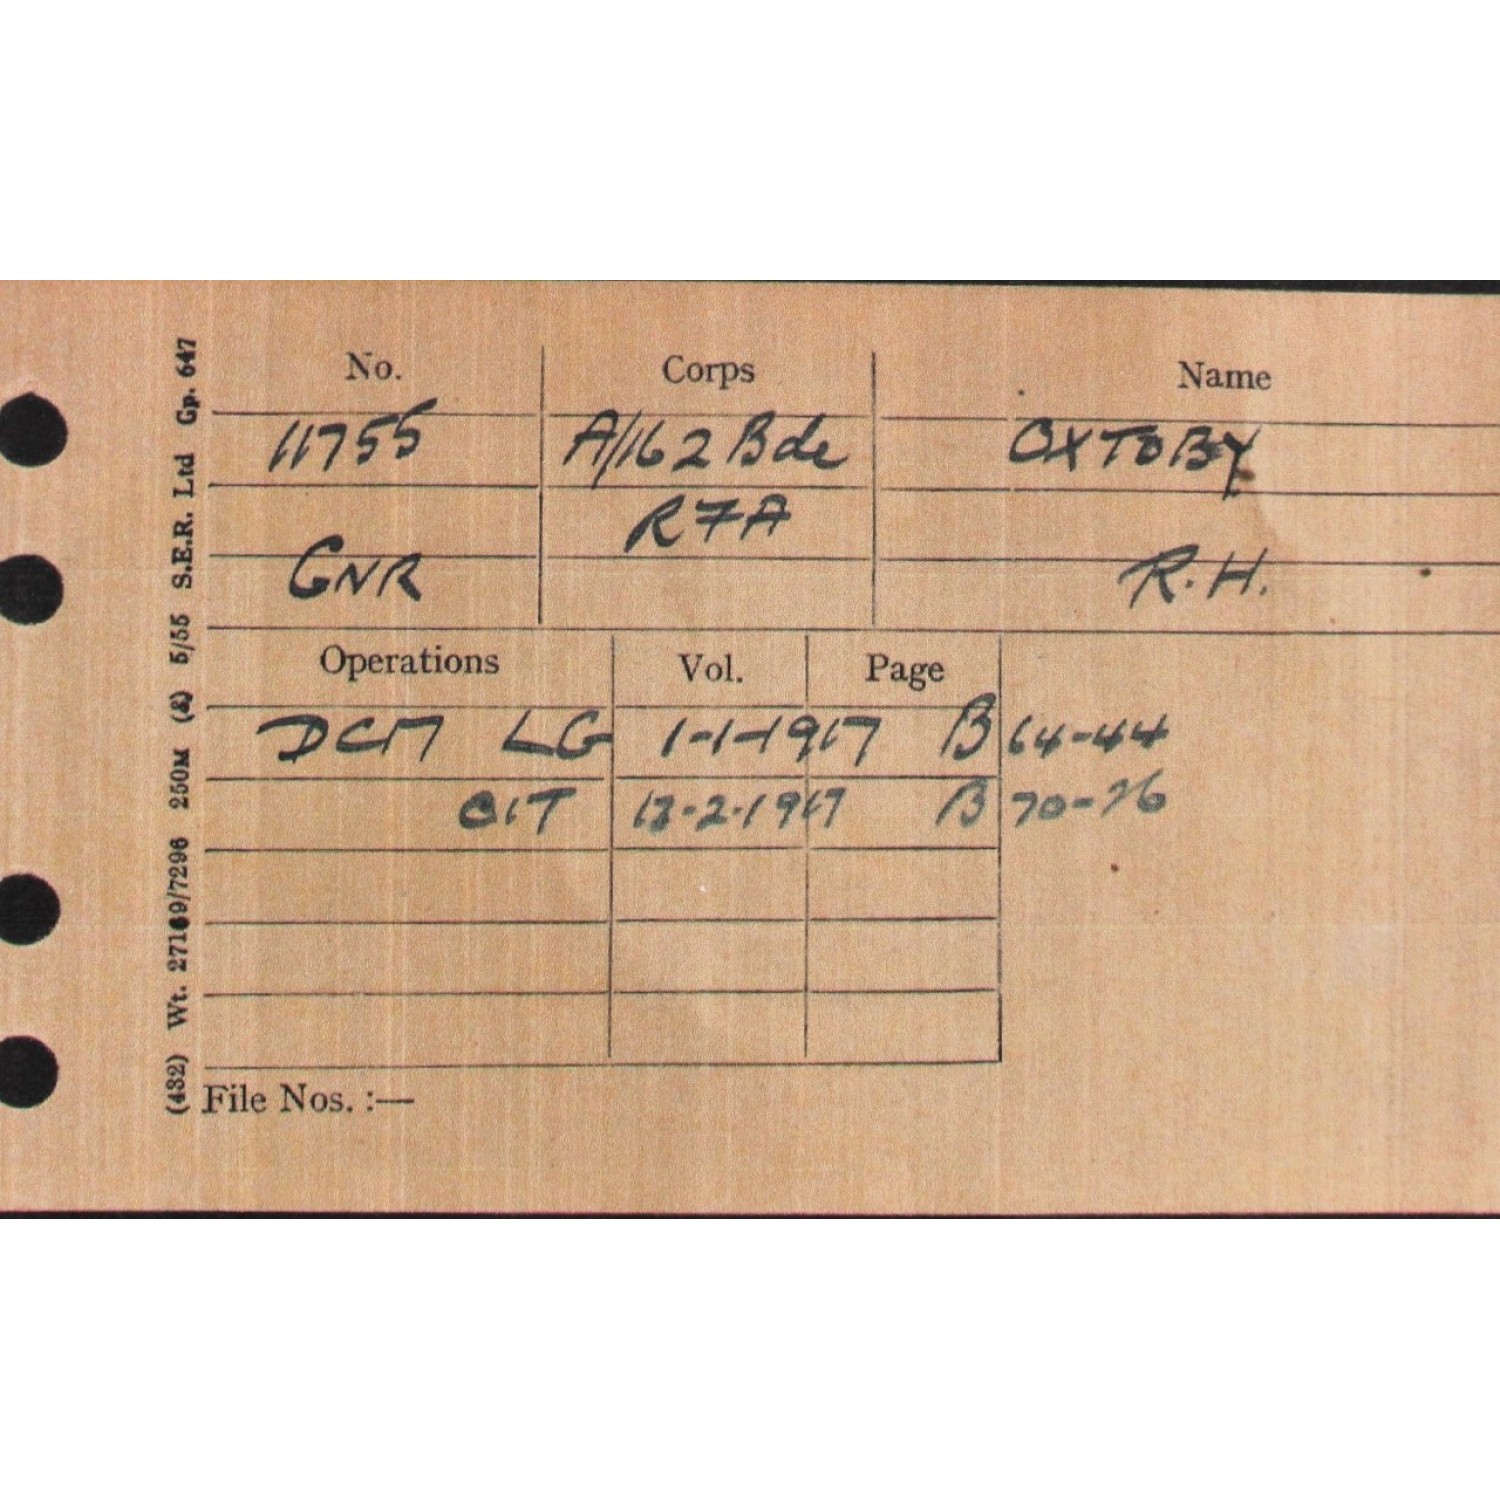 No. Corps Name
11755 A/162 Bde OXTOBY
RFA
GNR R.H.
Operations Vol. Page
DCM LG 1-1-1917 B 64-44
CIT 13-2-1917 B 70-76
File Nos. :—
(432) Wt. 27169/7296 250M (8) 5/55 S.E.R. Ltd Gp. 647